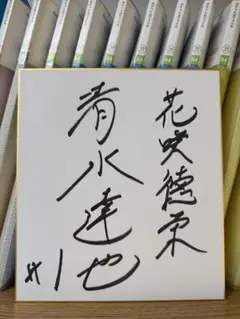 花咲徳栄
清水達也
#1